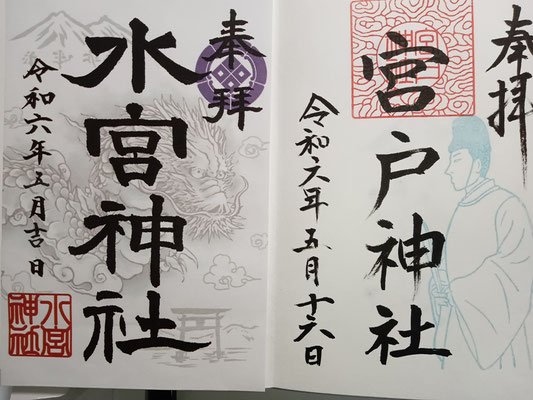 奉拝
宮戸神社
令和六年五月十六日
奉拝
水宮神社
令和六年五月吉日
水宮
神社